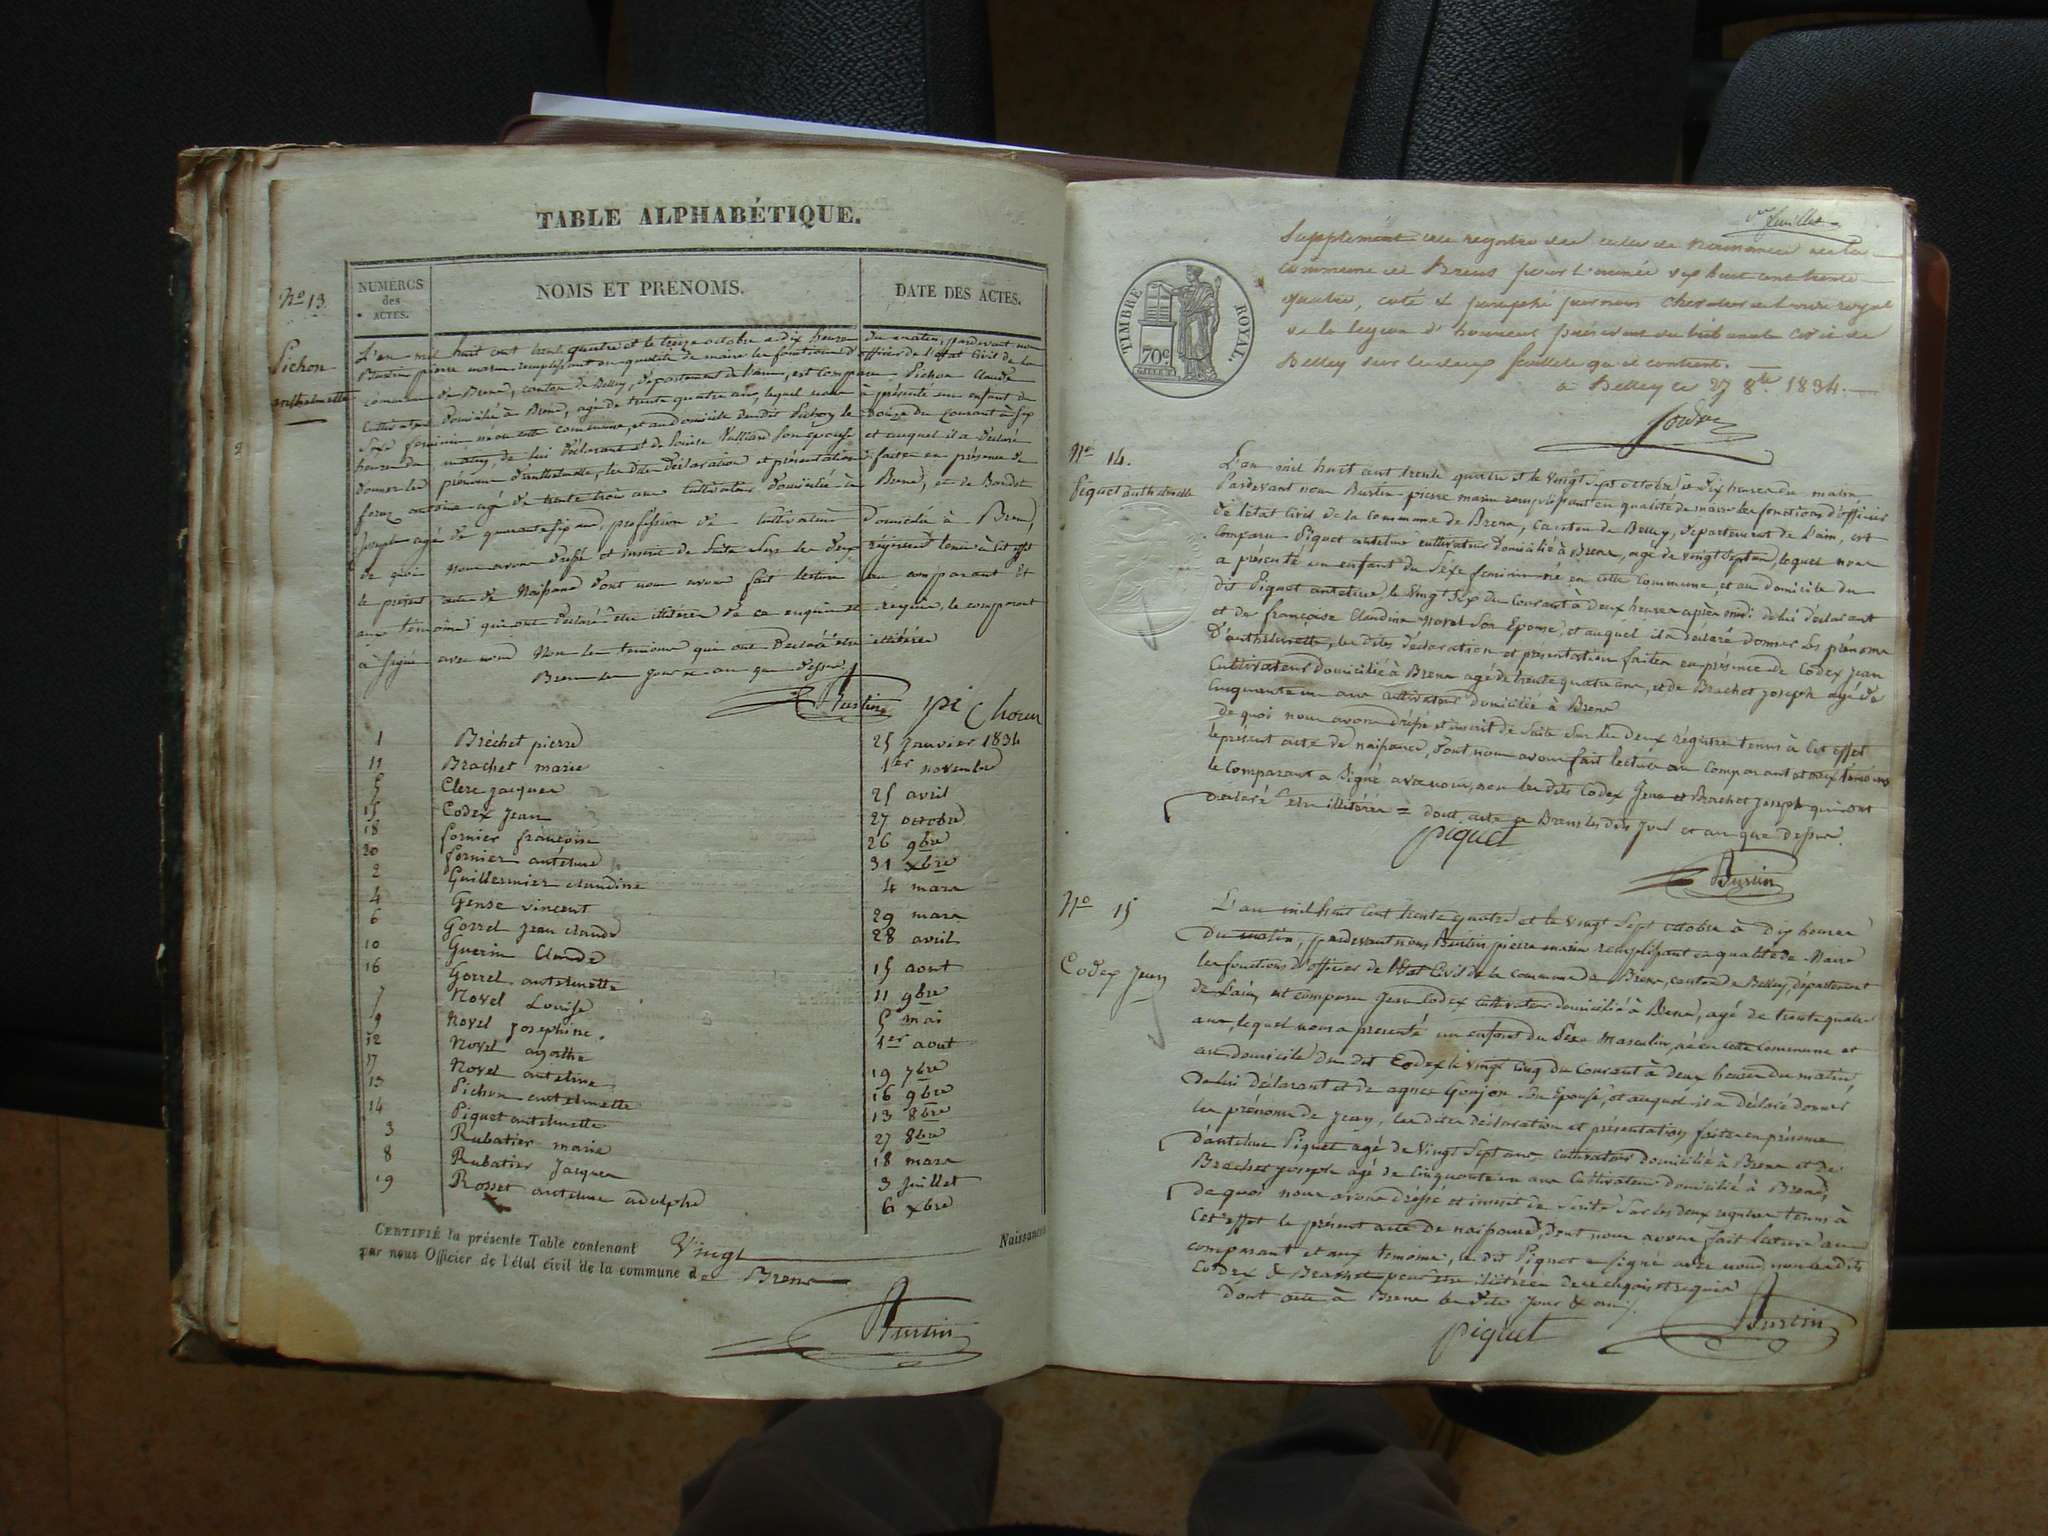 TABLE ALPHABÉTIQUE.
No 13.
Pichon
anthelmette
NUMÉROS
des
ACTES.
NOMS ET PRÉNOMS.
DATE DES ACTES.
L'an mil huit cent trente quatre et le treize octobre a dix heures du matin, pardevant nous
Burtin pierre maire remplissant en qualité de maire les fonctions d'officier de l'état Civil de la
commune de Brens, canton de Belley, département de l'ain, est comparu Pichon Claude
cultivateur domicilié à Brens, agé de trente quatre ans, lequel nous à présenté un enfant du
sexe feminin né en cette commune, et au domicile du dit Pichon le douze du courant à six
heures du matin, de lui déclarant et de Louise Vulliard son epouse et auquel il a déclaré
donner les prénoms d'anthelmette, les dites déclaration et présentation faites en présence de
antoine agé de trente trois ans Cultivateur domicilié à Brens, et de
Joseph agé de quarante six ans, profession de Cultivateur domicilié à Brens,
de quoi nous avons dressé et inscrit de suite sur les deux régistres tenus à cet effet
le présent acte de Naissance dont nous avons fait lecture au comparant et
aux témoins qui ont déclaré être illitérés de ce enquis et requis, le comparant
à signé avec nous Non les temoins qui ont declaré être illitérés
Brens les jour et an que dessus
Burtin pi Chon
1 Bréchet pierre 25 janvier 1834
11 Brachet marie 1er novembre
5 Clerc jacques 25 avril
15 Codex Jean 27 octobre
18 fornier françoise 26 9bre
20 fornier antelme 31 xbre
2 Guillermier claudine 4 mars
4 Gense vincent 29 mars
6 Gorrel jean claude 28 avril
10 Guerin Claude 15 aout
16 Gorrel antelmette 11 9bre
7 Novel Louise 5 mai
9 Novel Josephine. 1er aout
12 Novel agathe 19 7bre
17 Novel antelme 16 9bre
13 Pichon antelmette 13 8bre
14 Piquet antelmette 27 8bre
3 Rubatier marie 18 mars
8 Rubatier Jacques 3 Juillet
19 Rosset antelme adolphe 6 xbre
CERTIFIÉ la présente Table contenant Vingt Naissances
par nous Officier de l'état civil de la commune de Brens
Burtin
feuillet
Supplément au registre des actes de naissance de la
commune de Brens pour l'année mil huit cent trente
quatre, coté & paraphé par nous chevalier de l'ordre royal
de la legion d'honneur président du tribunal civil de
Belley sur les deux feuillets qu'il contient.
à Belley le 27 8bre 1834.
TIMBRE ROYAL.
70c.
No 14.
Piquet anthelmette
L'an mil huit cent trente quatre et le vingt sept octobre à dix heures du matin
Pardevant nous Burtin pierre maire remplissant en qualité de maire les fonctions d'officier
de l'état Civil de la commune de Brens, Canton de Belley, département de l'ain, est
comparu Piquet antelme cultivateur domicilié à Brens, agé de vingt sept ans, lequel nous
a présenté un enfant du sexe feminin né en cette commune, et au domicile du
dit Piquet antelme, le vingt six du courant à deux heures après midi de lui déclarant
et de françoise Claudine Novel son Epouse, et auquel il a déclaré donner les prénoms
d'anthelmette, les dites déclaration et présentation faites en présence de Codex Jean
Cultivateur domicilié à Brens agé de trente quatre ans, et de Brachet joseph agé de
Cinquante un ans cultivateur domicilié à Brens
De quoi nous avons dressé et inscrit de suite sur les deux régistres tenus à cet effet
le present acte de naissance, dont nous avons fait lecture au comparant et aux témoins
le comparant a signé avec nous, non les dits Codex Jean et Brachet Joseph qui ont
déclaré être illitérés = dont acte a Brens les dits jour et an que dessus.
piquet
Burtin
No 15
Codex Jean
L'an mil huit cent trente quatre et le vingt sept octobre à dix heures
du matin, pardevant nous Burtin pierre maire remplissant en qualité de Maire
les fonctions d'officier de l'état Civil de la commune de Brens, canton de Belley, département
de l'ain, est comparu Jean Codex cultivateur domicilié à Brens, agé de trente quatre
ans, lequel nous a presenté un enfant du sexe masculin, né en cette commune et
au domicile du dit Codex le vingt cinq du courant à deux heures du matin,
de lui déclarant et de agnes Goujon son Epouse, et auquel il a déclaré donner
les prénoms de Jean, les dites déclaration et présentation faites en présence
d'antelme Piquet agé de vingt sept ans cultivateur domicilié à Brens et de
Brachet joseph agé de Cinquante un ans Cultivateur domicilié à Brens,
de quoi nous avons dressé et inscrit de suite sur les deux registres tenus à
cet effet le présent acte de naissance, dont nous avons fait lecture au
comparant et aux temoins, le dit Piquet a signé avec nous, non les dits
Codex & Brachet pour être illitérés de ce enquis et requis
dont acte à Brens les dits jour & an /.
piquet
Burtin